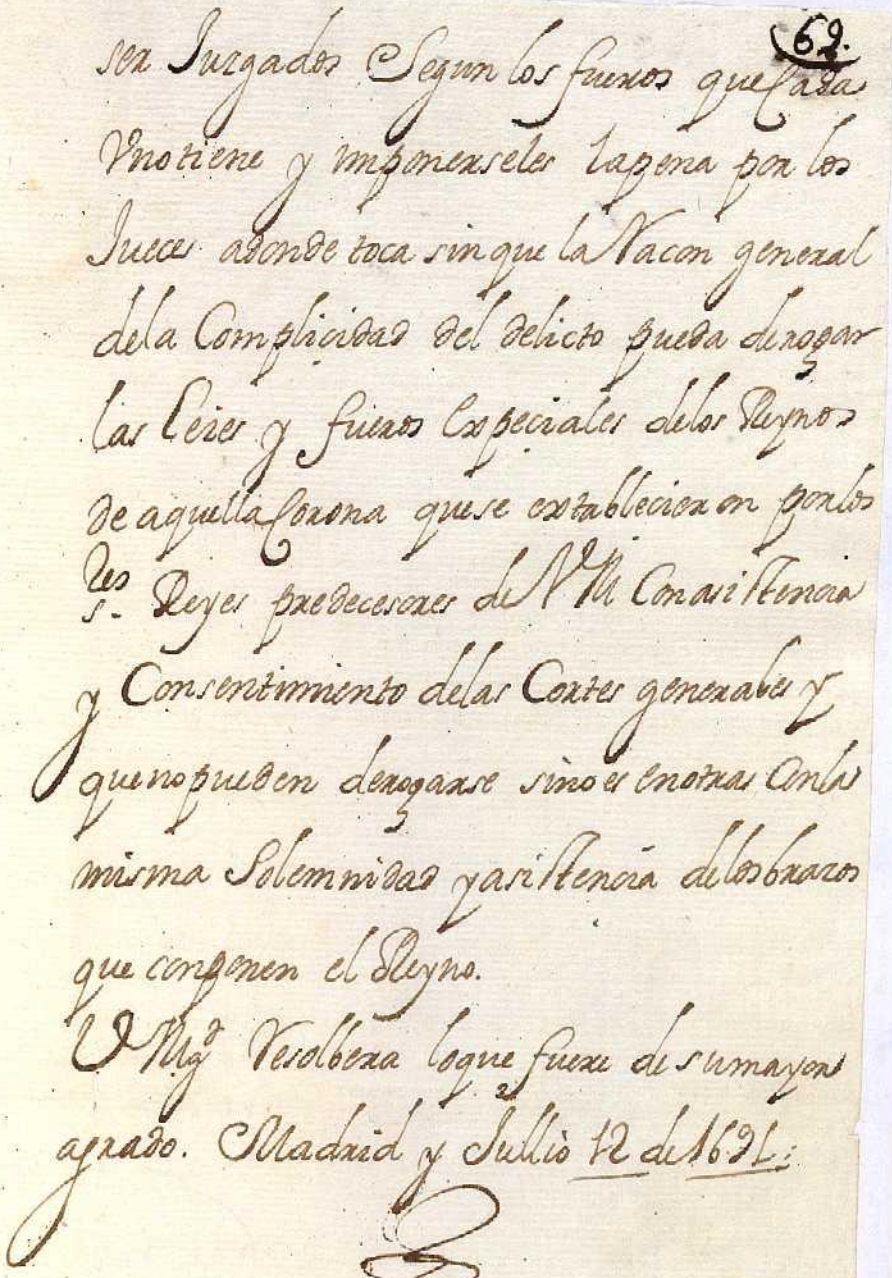 62.
ser Jurgados Segun los fueros que Cada
Vno tiene y imponerseles la pena por los
Jueces adonde toca sin que la Racon general
de la Complicidad del delicto pueda derogar
las Leies y fueros especiales de los Reynos
de aquella Corona que se establecieron por los
ses
s. Reyes predecesores de V M Con asistencia
y Consentimiento de las Cortes generales y
que no pueden derogarse sino es en otras Con la
misma Solemnidad y asistencia de los brazos
que conponen el Reyno.
V Mgd Resolbera lo que fuere de su mayor
agrado. Madrid y Jullio 12 de 1691: